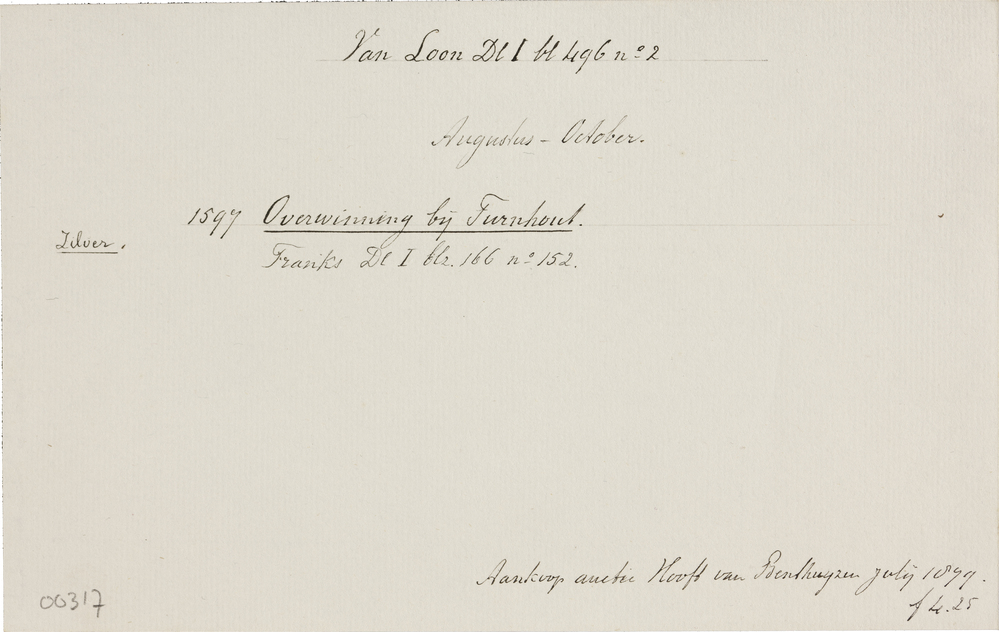 Van Loon Dl I bl 496 nº 2
Augustus - October.
1597 Overwinning bij Turnhout.
Zilver.
Franks Dl I blz. 166 nº 152.
Aankoop auctie Hooft van Benthuyzen July 1879.
f 4.25
00317